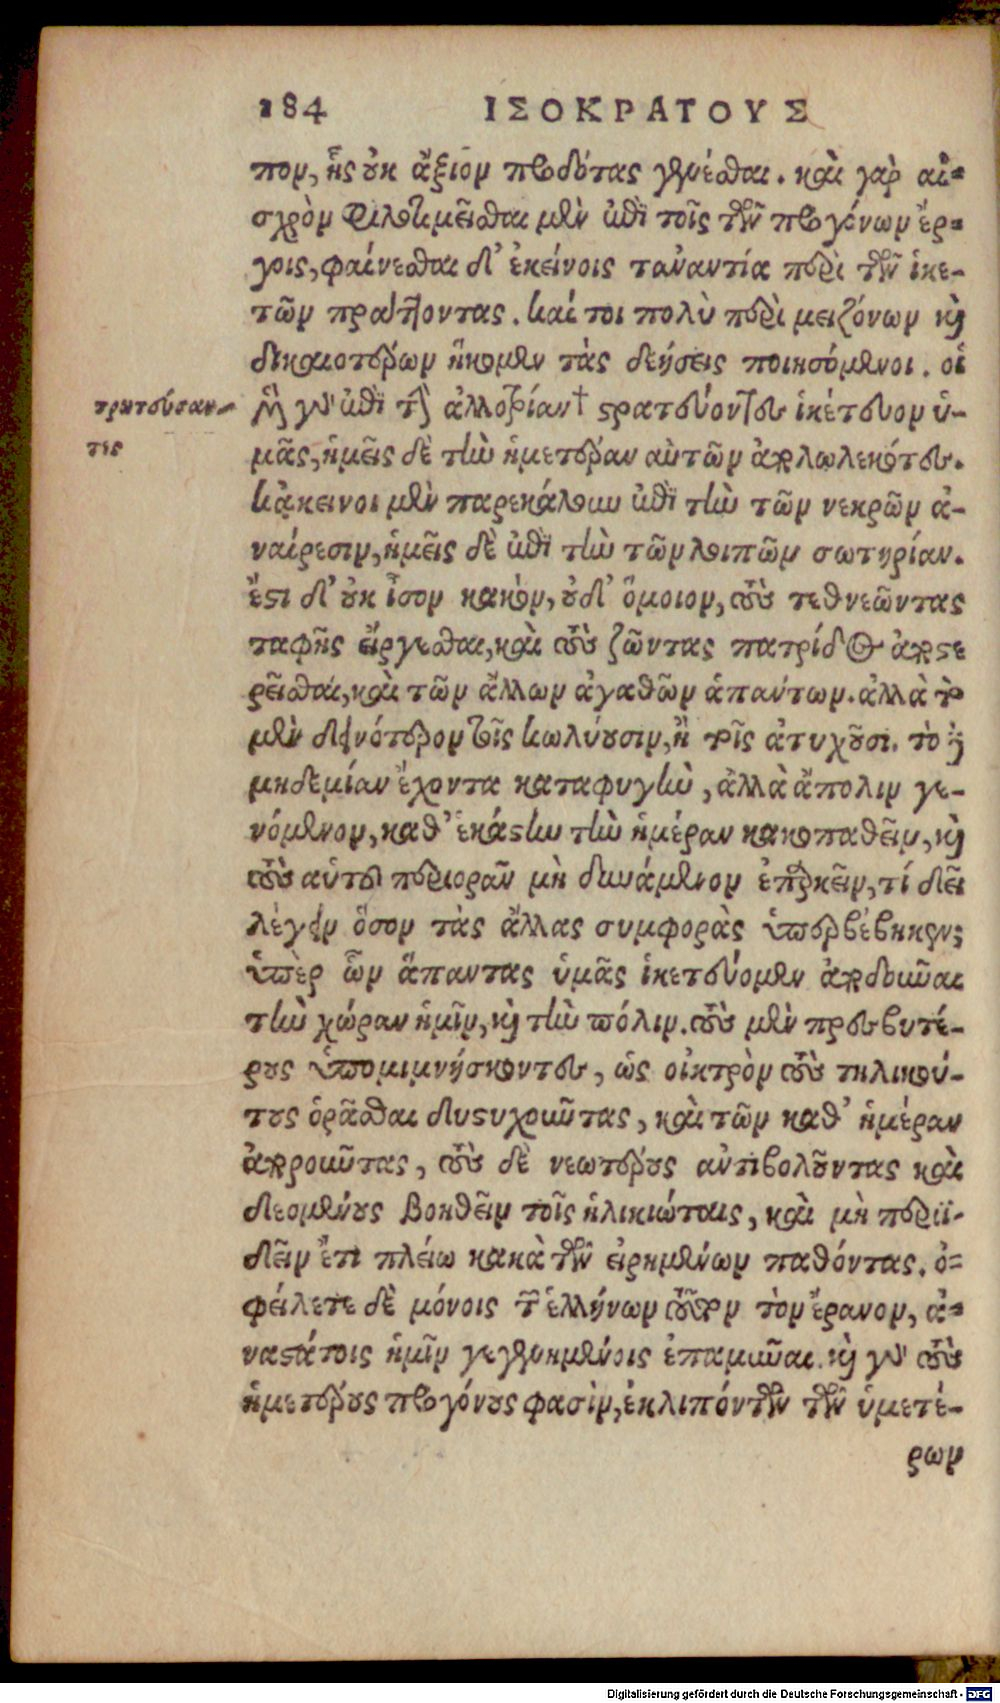 184 ΙΣΟΚΡΑΤΟΥΣ
πον, ἧς οὐκ ἄξιον προδότας γενέσθαι. καὶ γὰρ αἰ-
σχρὸν φιλοτιμεῖσθαι μὲν ἐπὶ τοῖς τῶν προγόνων ἔρ-
γοις, φαίνεσθαι δ' ἐκείνοις τἀναντία περὶ τῶν ἱκε-
τῶν πράττοντας. καί τοι πολὺ περὶ μειζόνων καὶ
δικαιοτέρων ἥκομεν τὰς δεήσεις ποιησόμενοι. οἱ
μὲν γὰρ ἐπὶ τὴν ἀλλοτρίαν† στρατεύοντες ἱκέτευον ὑ-
μᾶς, ἡμεῖς δὲ τὴν ἡμετέραν αὐτῶν ἀπολωλεκότες.
κἀκεινοι μὲν παρεκάλουν ἐπὶ τὴν τῶν νεκρῶν ἀ-
ναίρεσιν, ἡμεῖς δὲ ἐπὶ τὴν τῶν λοιπῶν σωτηρίαν.
ἔστι δ' οὐκ ἶσον κακὸν, οὐδ' ὅμοιον, τοὺς τεθνεῶντας
ταφῆς εἴργεσθαι, καὶ τοὺς ζῶντας πατρίδος ἀποστε
ρεῖσθαι, καὶ τῶν ἄλλων ἀγαθῶν ἁπάντων. ἀλλὰ τὸ
μὲν δεινότερον τοῖς κωλύουσιν, ἢ τοῖς ἀτυχοῦσι. τὸ δὲ
μηδεμίαν ἔχοντα καταφυγὴν, ἀλλὰ ἄπολιν γε-
νόμενον, καθ' ἑκάστην τὴν ἡμέραν κακοπαθεῖν, καὶ
τοὺς αὑτοῦ περιορᾶν μὴ δυνάμενον ἐπαρκεῖν, τί δεῖ
λέγειν ὅσον τὰς ἄλλας συμφορὰς ὑπερβέβηκεν;
ὑπὲρ ὧν ἅπαντας ὑμᾶς ἱκετεύομεν ἀποδοῦναι
τὴν χώραν ἡμῖν, καὶ τὴν πόλιν. τοὺς μὲν πρεσβυτέ-
ρους ὑπομιμνήσκοντες, ὡς οἰκτρὸν τοὺς τηλικού-
τους ὁρᾶσθαι δυστυχοῦντας, καὶ τῶν καθ' ἡμέραν
ἀποροῦντας, τοὺς δὲ νεωτέρους ἀντιβολοῦντας καὶ
δεομένους βοηθεῖν τοῖς ἡλικιώταις, καὶ μὴ περιϊ-
δεῖν ἔτι πλείω κακὰ τῶν εἰρημένων παθόντας. ὀ-
φείλετε δὲ μόνοις τῶν ἑλλήνων τοῦτον τὸν ἔρανον, ἀ-
ναστάτοις ἡμῖν γεγενημένοις ἐπαμῦναι. καὶ γὰρ τοὺς
ἡμετέρους προγόνους φασὶν, ἐκλιπόντων τῶν ὑμετέ-
ρων
Digitalisierung gefördert durch die Deutsche Forschungsgemeinschaft - DFG